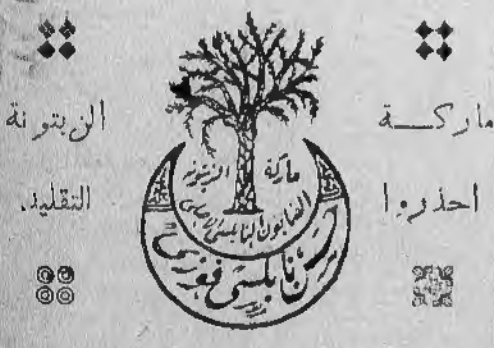 ماركـــة الزيتونة
احذروا التقليد.
ماركة الزيتونة
الصابون النابلسي
نابلسي فوزي